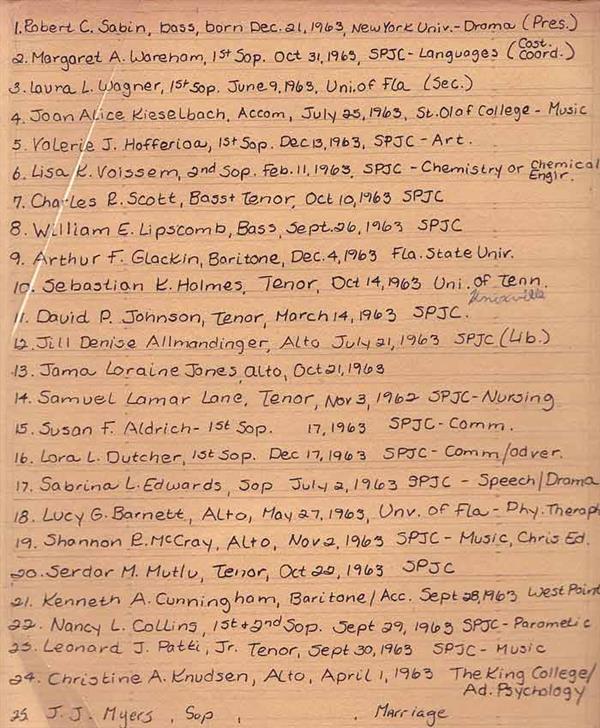 1. Robert C. Sabin, bass, born Dec. 21, 1963, New York Univ. - Drama (Pres.)
2. Margaret A. Wareham, 1st Sop. Oct 31, 1963, SPJC - Languages (Cost. Coord.)
3. Laura L. Wagner, 1st Sop. June 9, 1963, Uni. of Fla (Sec.)
4. Joan Alice Kieselbach, Accom, July 25, 1963, St. Olaf College - Music
5. Valerie J. Hofferica, 1st Sop. Dec 13, 1963, SPJC - Art.
6. Lisa K. Voissem, 2nd Sop. Feb. 11, 1963, SPJC - Chemistry or Chemical Engir.
7. Charles R. Scott, Bass + Tenor, Oct 10, 1963 SPJC
8. William E. Lipscomb, Bass, Sept. 26, 1963 SPJC
9. Arthur F. Glackin, Baritone, Dec. 4, 1963 Fla. State Univ.
10. Sebastian K. Holmes, Tenor, Oct 14, 1963 Uni. of Tenn.
Knoxville
11. David P. Johnson, Tenor, March 14, 1963 SPJC.
12. Jill Denise Allmandinger, Alto July 21, 1963 SPJC (Lib.)
13. Jama Loraine Jones, alto, Oct 21, 1963
14. Samuel Lamar Lane, Tenor, Nov 3, 1962 SPJC - Nursing
15. Susan F. Aldrich - 1st Sop. 17, 1963 SPJC - Comm.
16. Lora L. Dutcher, 1st Sop. Dec 17, 1963 SPJC - Comm/adver.
17. Sabrina L. Edwards, Sop July 2, 1963 SPJC - Speech/Drama
18. Lucy G. Barnett, Alto, May 27, 1963, Unv. of Fla - Phy. Theraph
19. Shannon R. McCray, Alto, Nov 2, 1963 SPJC - Music, Chris Ed.
20. Serdar M. Mutlu, Tenor, Oct 22, 1963 SPJC
21. Kenneth A. Cunningham, Baritone/Acc. Sept 28, 1963 West Point
22. Nancy L. Collins, 1st + 2nd Sop. Sept 29, 1963 SPJC - Parametic
23. Leonard J. Patti, Jr. Tenor, Sept 30, 1963 SPJC - Music
24. Christine A. Knudsen, Alto, April 1, 1963 The King College/
Ad. Psychology
25. J. J. Myers, Sop , , Marriage